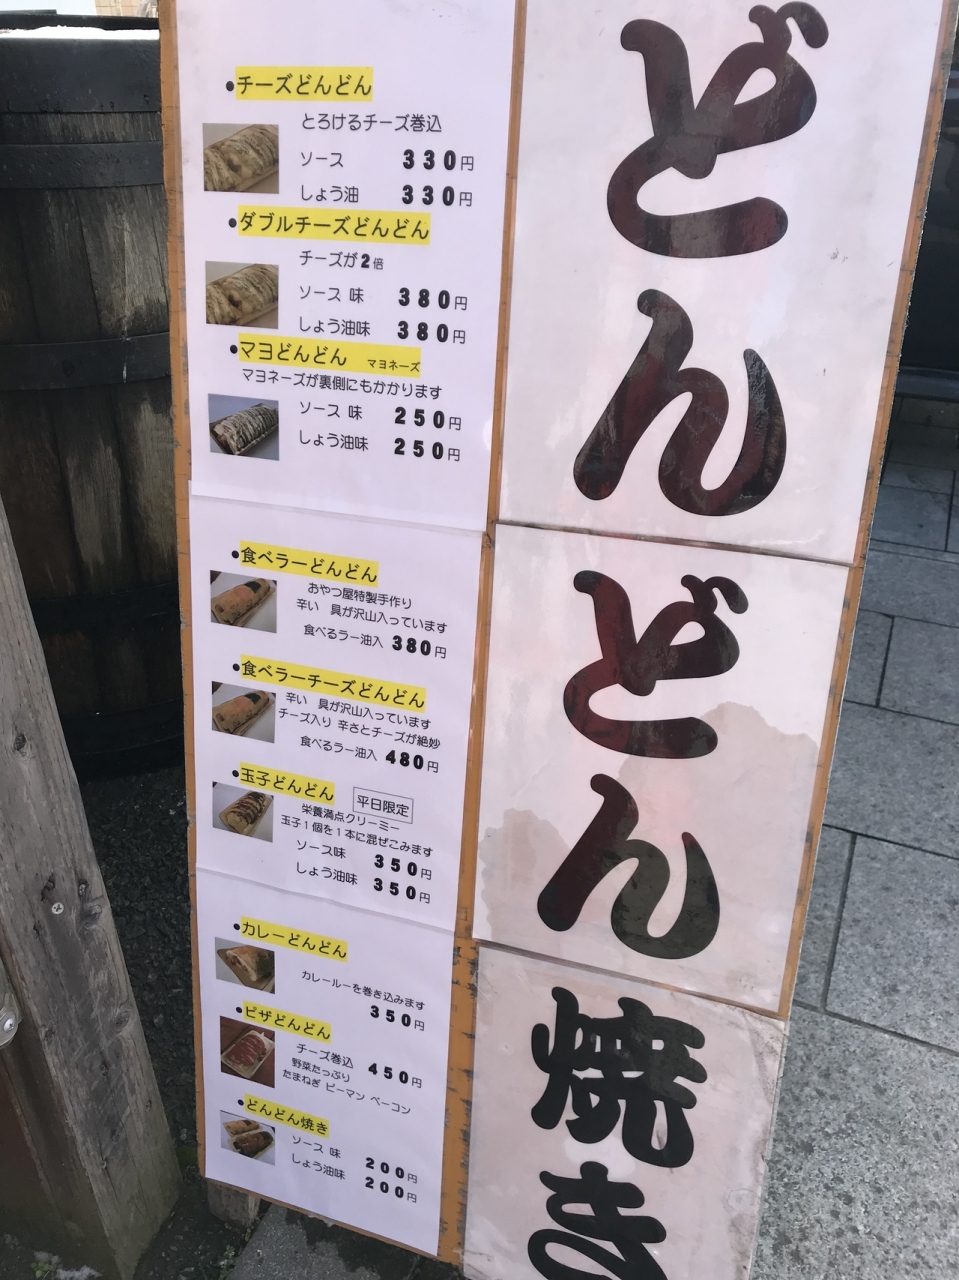 ●チーズどんどん
とろけるチーズ巻込
ソース 330円
しょう油 330円
●ダブルチーズどんどん
チーズが2倍
ソース 味 380円
しょう油味 380円
●マヨどんどん マヨネーズ
マヨネーズが裏側にもかかります
ソース 味 250円
しょう油味 250円
●食べラーどんどん
おやつ屋特製手作り
辛い 具が沢山入っています
食べるラー油入 380円
●食べラーチーズどんどん
辛い 具が沢山入っています
チーズ入り 辛さとチーズが絶妙
食べるラー油入 480円
●玉子どんどん 平日限定
栄養満点クリーミー
玉子1個を1本に混ぜこみます
ソース味 350円
しょう油味 350円
●カレーどんどん
カレールーを巻き込みます
350円
●ピザどんどん
チーズ巻込 450円
野菜たっぷり
たまねぎ ピーマン ベーコン
●どんどん焼き
ソース 味 200円
しょう油味 200円
どんどん焼き